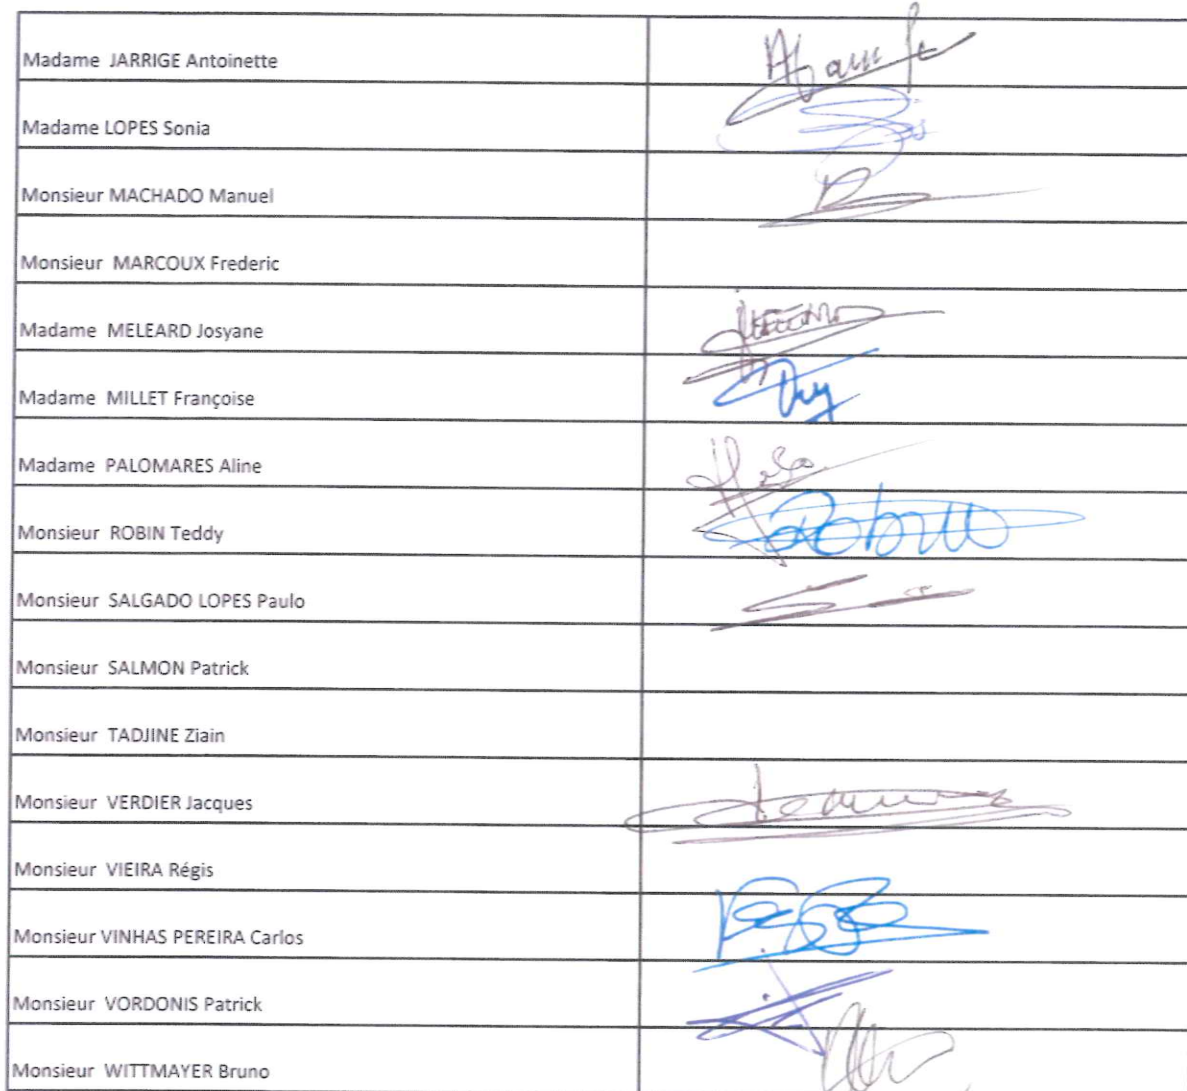 Madame JARRIGE Antoinette
Madame LOPES Sonia
Monsieur MACHADO Manuel
Monsieur MARCOUX Frederic
Madame MELEARD Josyane
Madame MILLET Françoise
Madame PALOMARES Aline
Monsieur ROBIN Teddy
Monsieur SALGADO LOPES Paulo
Monsieur SALMON Patrick
Monsieur TADJINE Ziain
Monsieur VERDIER Jacques
Monsieur VIEIRA Régis
Monsieur VINHAS PEREIRA Carlos
Monsieur VORDONIS Patrick
Monsieur WITTMAYER Bruno